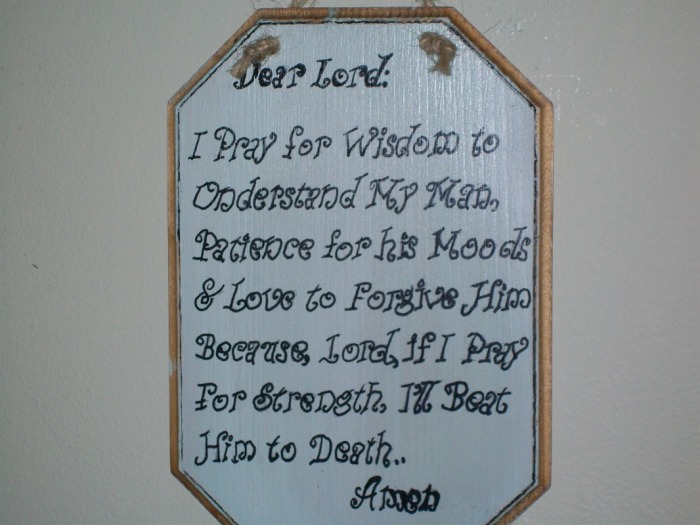 Dear Lord:
I Pray for Wisdom to
Understand My Man,
Patience for his Moods
& Love to Forgive Him
Because, Lord, if I Pray
For Strength, I'll Beat
Him to Death..
Amen